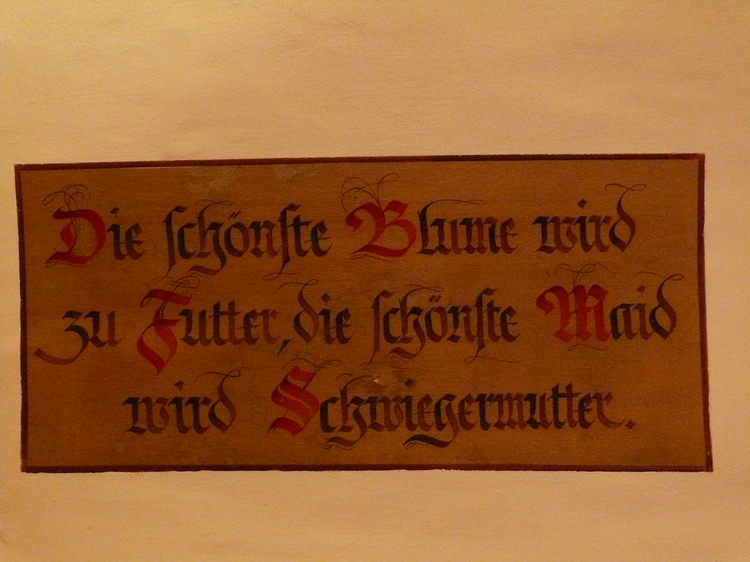 Die schönste Blume wird
zu Futter, die schönste Maid
wird Schwiegermutter.